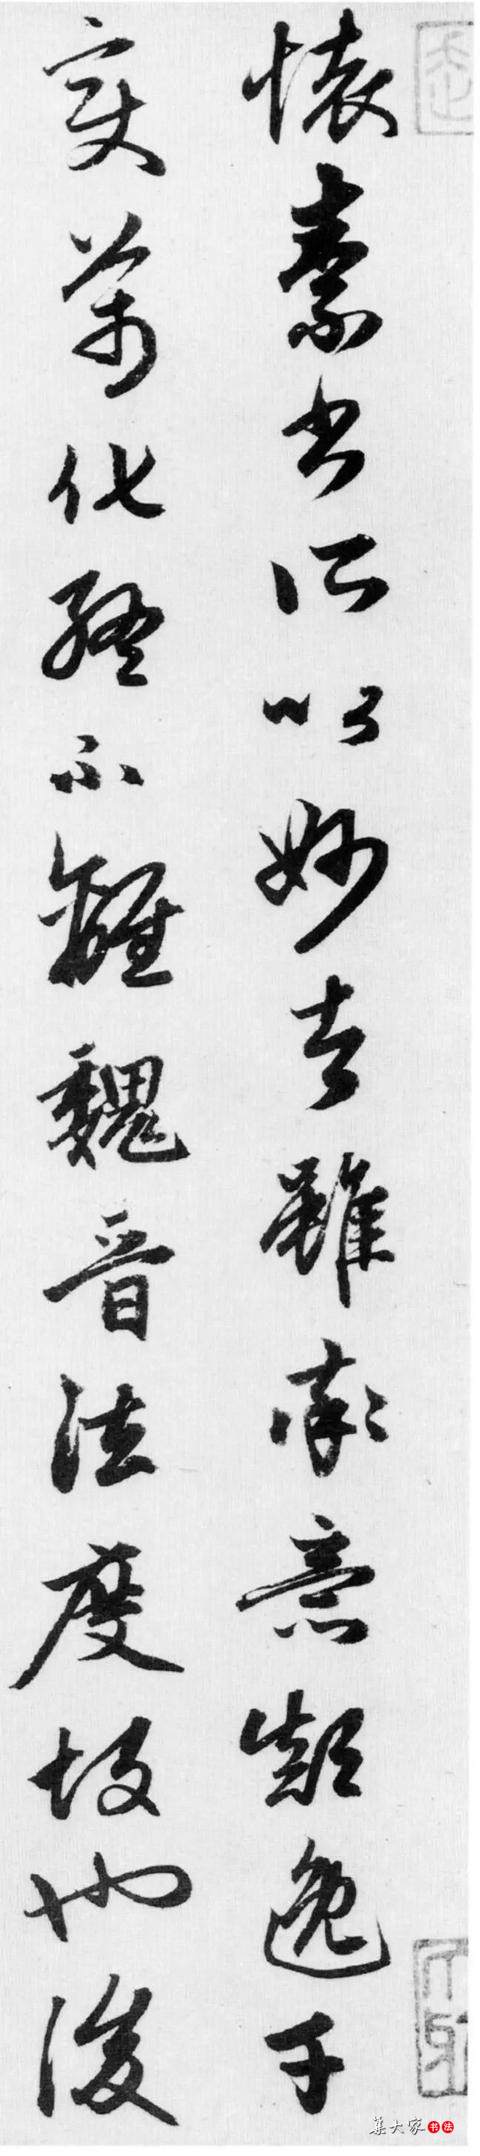 懷素書所以妙者雖率意顛逸千
變萬化終不離魏晉法度故也後
集大家书法